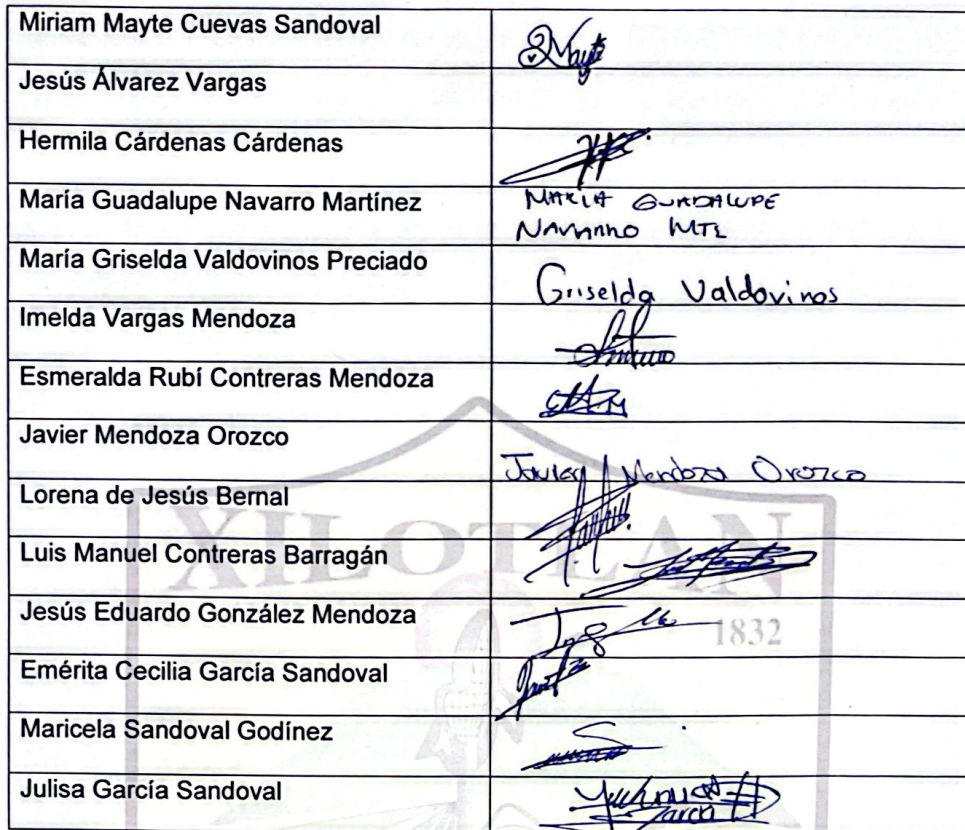 Miriam Mayte Cuevas Sandoval
Mayte
Jesús Álvarez Vargas
Hermila Cárdenas Cárdenas
María Guadalupe Navarro Martínez
MARIA GUADALUPE
NAVARRO MTZ
María Griselda Valdovinos Preciado
Griselda Valdovinos
Imelda Vargas Mendoza
Esmeralda Rubí Contreras Mendoza
Javier Mendoza Orozco
Javier Mendoza Orozco
Lorena de Jesús Bernal
XILOTLAN
Luis Manuel Contreras Barragán
Jesús Eduardo González Mendoza
1832
Emérita Cecilia García Sandoval
Maricela Sandoval Godínez
Julisa García Sandoval
García